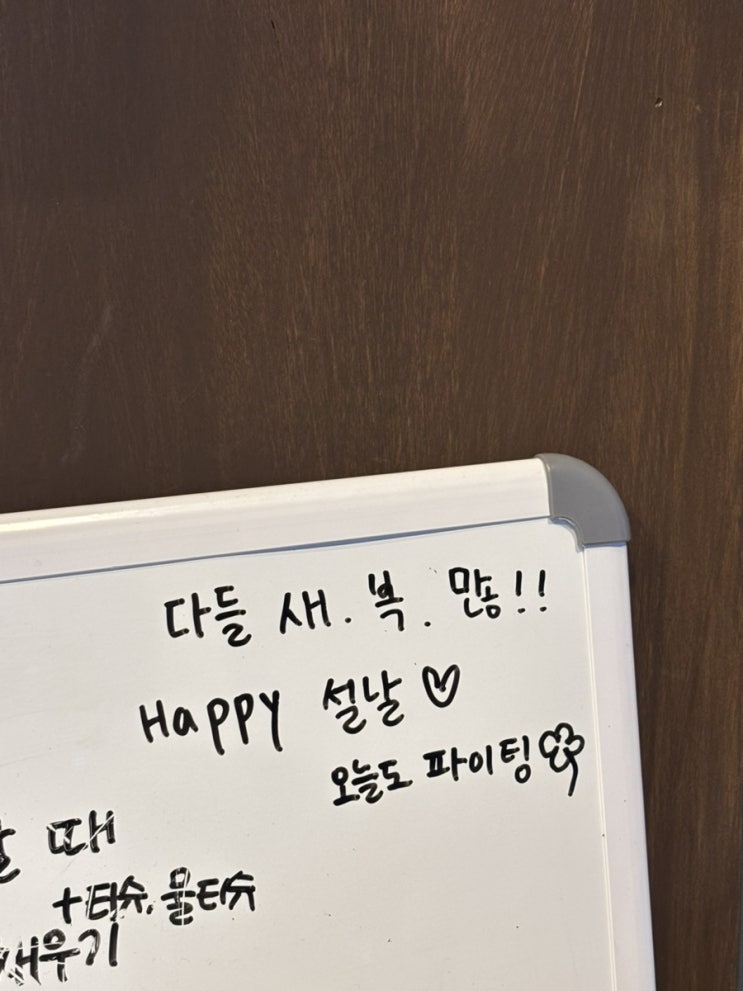 다들 새. 복. 만송!!
Happy 설날 ♡
오늘도 파이팅
때
+티슈, 물티슈
채우기